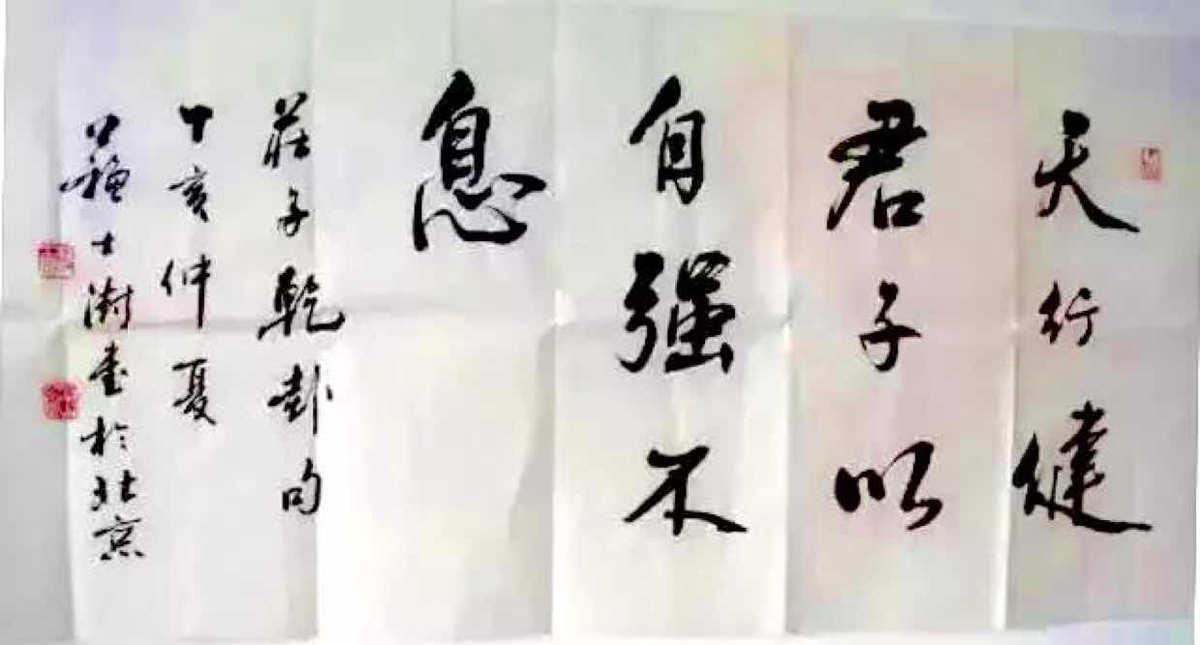 天行健
君子以
自强不
息
莊子乾卦句
丁亥仲夏
蘇士澍書於北京